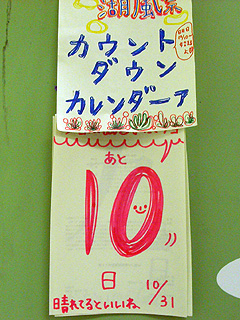 湖風祭
カウント
ダウン
カレンダーァ
あと
10
日
10/31
晴れてるといいね。